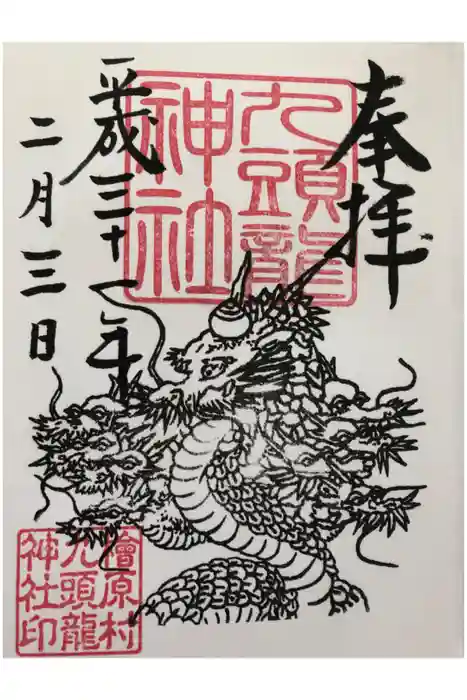 奉拝
九頭龍
神社
平成三十一年
二月三日
檜原村
九頭龍
神社印